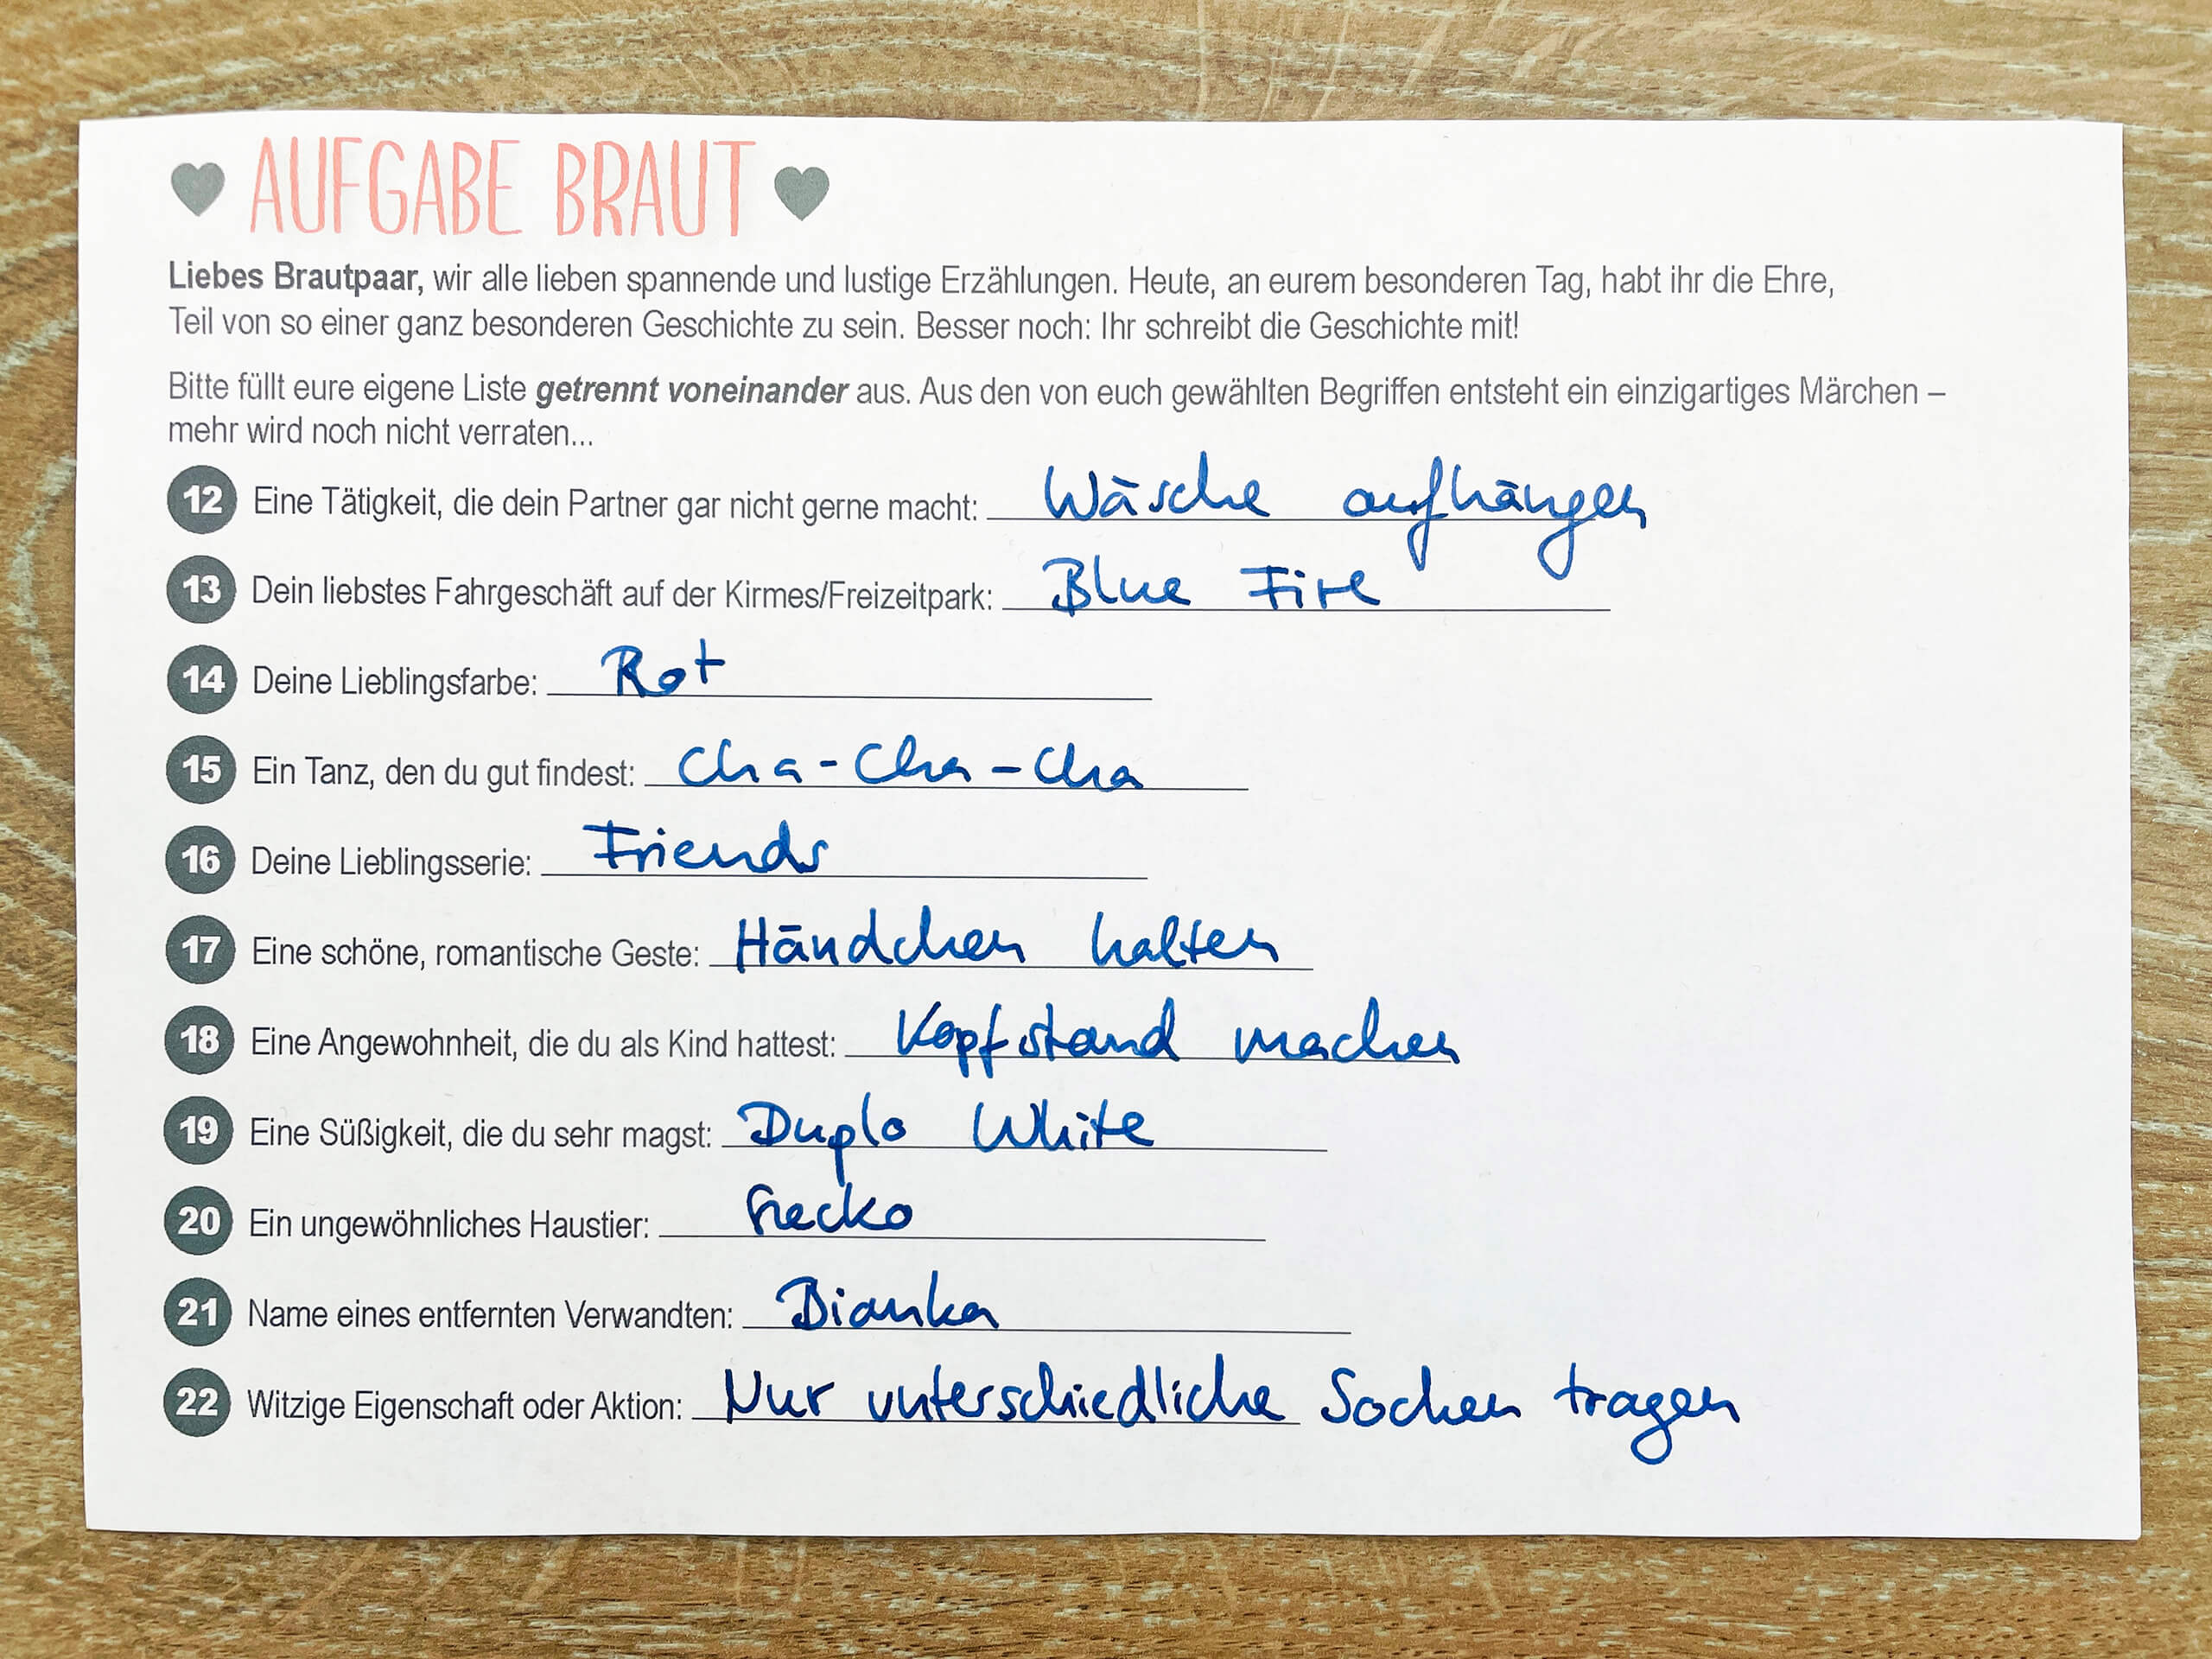 AUFGABE BRAUT
Liebes Brautpaar, wir alle lieben spannende und lustige Erzählungen. Heute, an eurem besonderen Tag, habt ihr die Ehre,
Teil von so einer ganz besonderen Geschichte zu sein. Besser noch: Ihr schreibt die Geschichte mit!
Bitte füllt eure eigene Liste getrennt voneinander aus. Aus den von euch gewählten Begriffen entsteht ein einzigartiges Märchen –
mehr wird noch nicht verraten...
12 Eine Tätigkeit, die dein Partner gar nicht gerne macht: Wäsche aufhängen
13 Dein liebstes Fahrgeschäft auf der Kirmes/Freizeitpark: Blue Fire
14 Deine Lieblingsfarbe: Rot
15 Ein Tanz, den du gut findest: Cha-Cha-Cha
16 Deine Lieblingsserie: Friends
17 Eine schöne, romantische Geste: Händchen halten
18 Eine Angewohnheit, die du als Kind hattest: Kopfstand machen
19 Eine Süßigkeit, die du sehr magst: Duplo White
20 Ein ungewöhnliches Haustier: Gecko
21 Name eines entfernten Verwandten: Bianka
22 Witzige Eigenschaft oder Aktion: Nur unterschiedliche Socken tragen